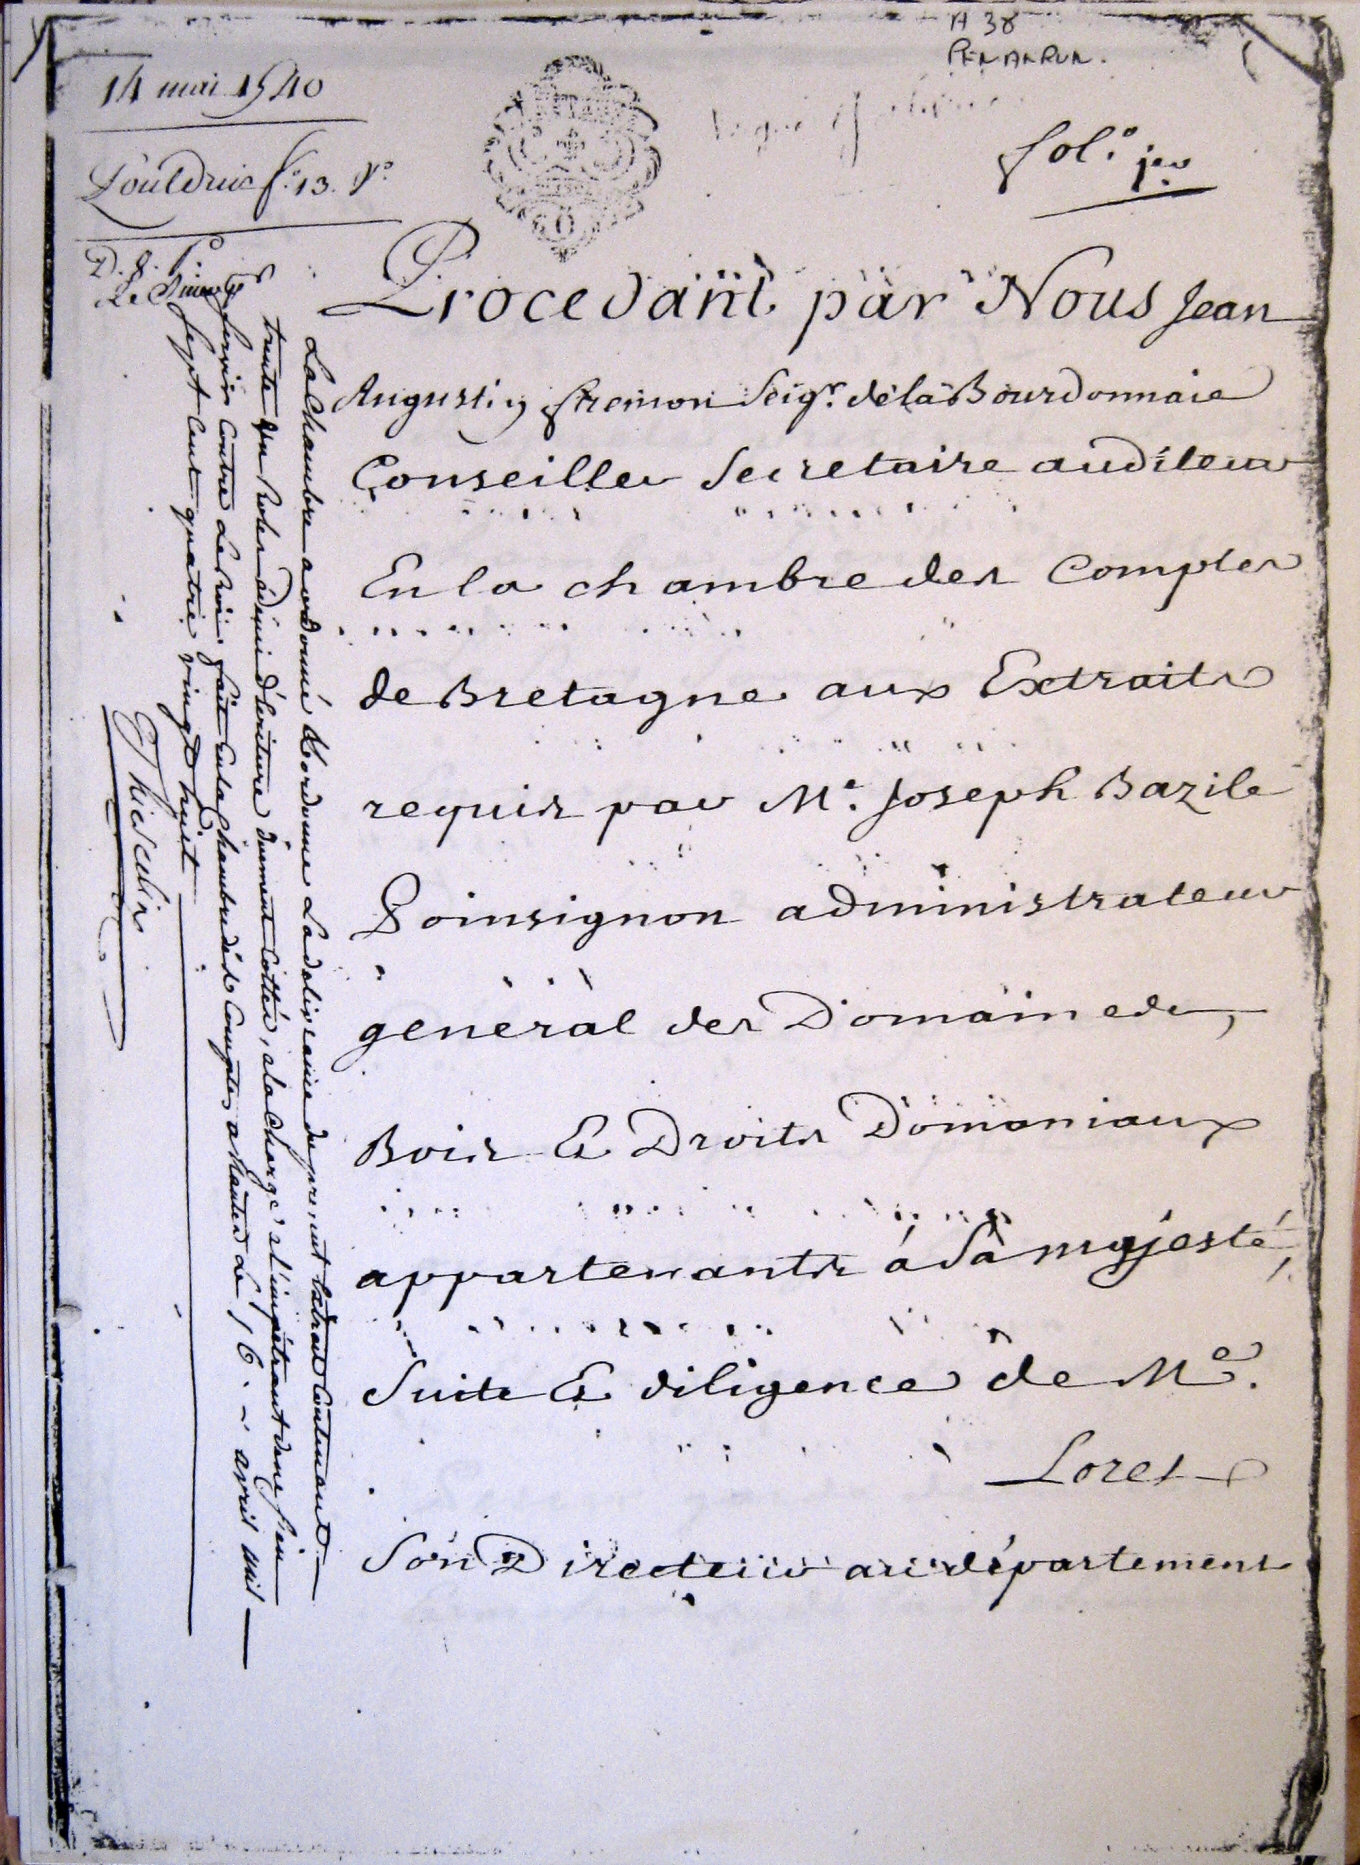 H 38
PENANRUN.
14 mai 1540
fol.o 1er
Pouldreuzic fo. 13. Vo
Procedant par Nous Jean
Augustin fremon Seigr. dela Bourdonnaie
Conseiller Secretaire auditeur
En la chambre des Comptes
de Bretagne aux Extraits
requis par Me. Joseph Bazile
Poinsignon administrateur
general des Domaines,
Bois Et Droits Domaniaux
appartenants á Sa majesté,
Suite Et diligence de Me.
Loret
Son Directeur au département
La Chambre a ordonné & ordonne La delivrance du present Extrait Contenant
trente Roles & demi d'ecriture dument Cottés, a la Charge a l'impetrant de ne s'en
servir Contre Le Roi. fait En la Chambre des Comptes a Nantes Le 16 avril mil
sept Cent quatre vingt huit